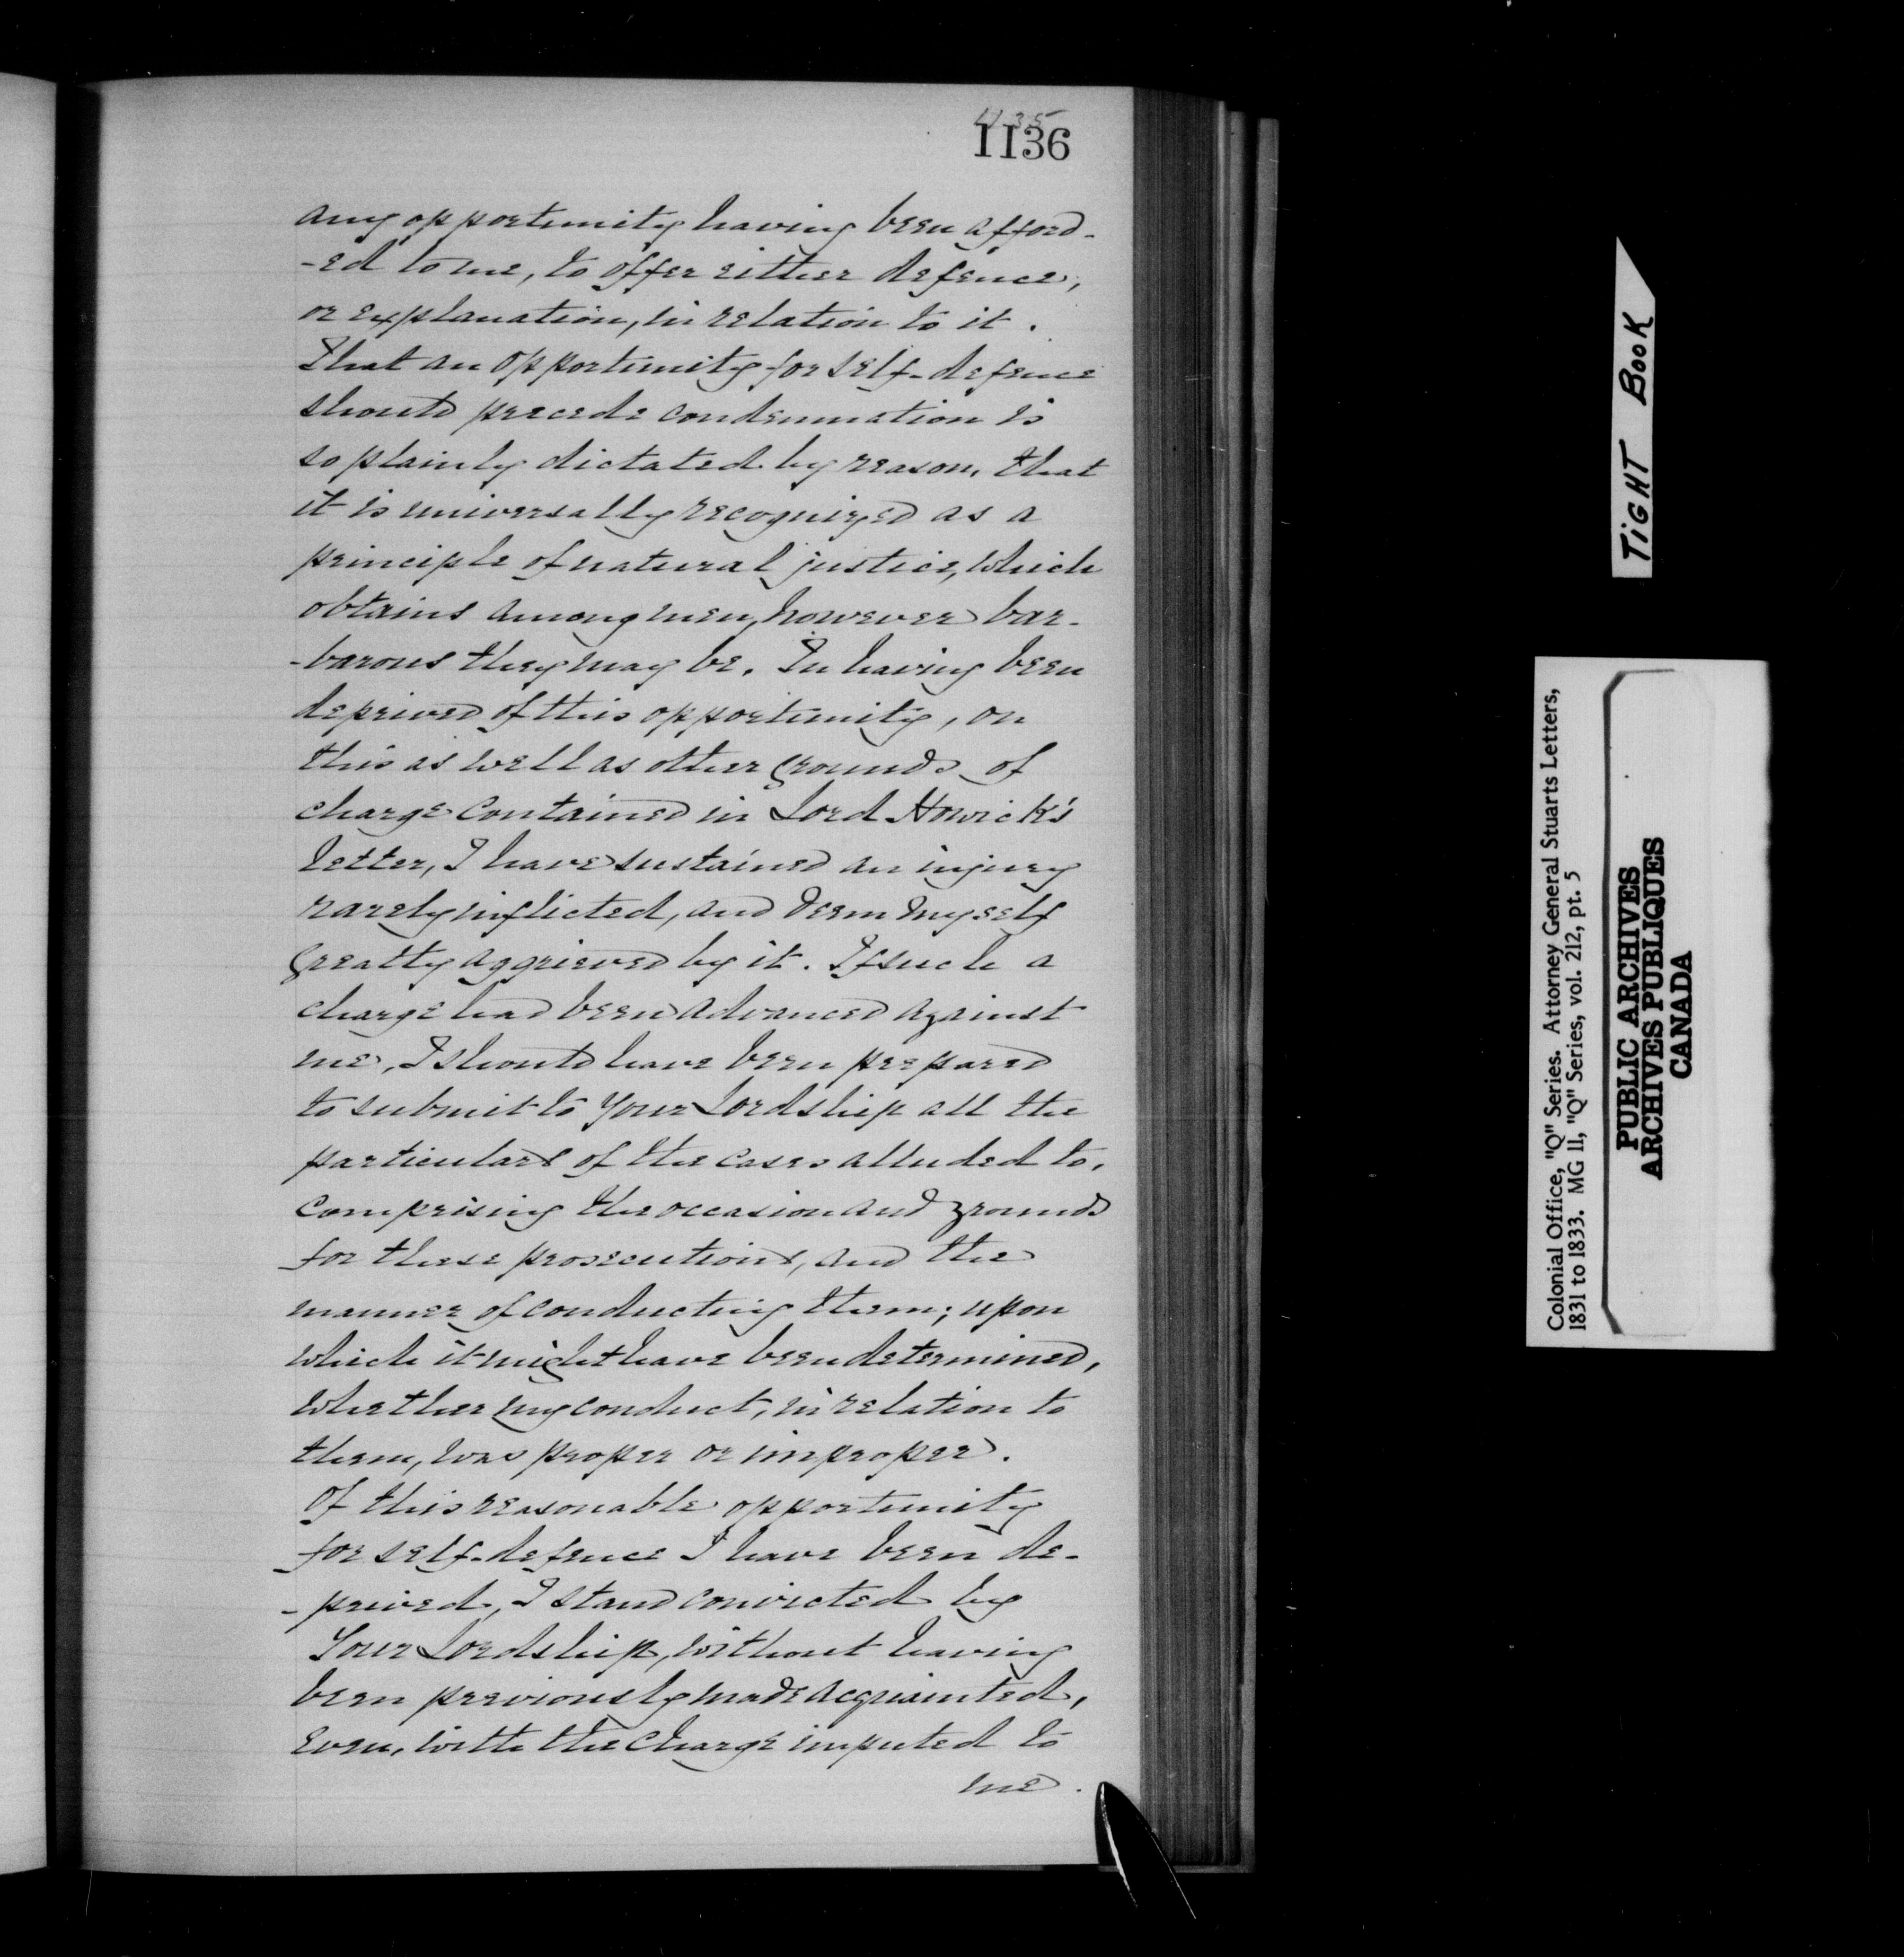 1135
1136
any opportunity having been afford-
-ed to me, to offer either defence,
or explanation, in relation to it.
That an opportunity for self-defence
should precede condemnation is
so plainly dictated by reason, that
it is universally recognized as a
principle of natural justice, which
obtains among men, however bar-
-barous they may be. In having been
deprived of this opportunity, on
this as well as other grounds of
charge contained in Lord Howick's
letter, I have sustained an injury
rarely inflicted, and deem myself
greatly aggrieved by it. If such a
charge had been advanced against
me, I should have been prepared
to submit to Your Lordship all the
particulars of the cases alluded to,
comprising the occasion and grounds
for these prosecutions, and the
manner of conducting them; upon
which it might have been determined,
whether my conduct, in relation to
them, was proper or improper.
Of this reasonable opportunity
for self-defence I have been de-
-prived, I stand convicted by
Your Lordship, without having
been previously made acquainted,
even, with the charge imputed to
me.
TIGHT BOOK
Colonial Office, "Q" Series. Attorney General Stuarts Letters,
1831 to 1833. MG 11, "Q" Series, vol. 212, pt. 5
PUBLIC ARCHIVES
ARCHIVES PUBLIQUES
CANADA